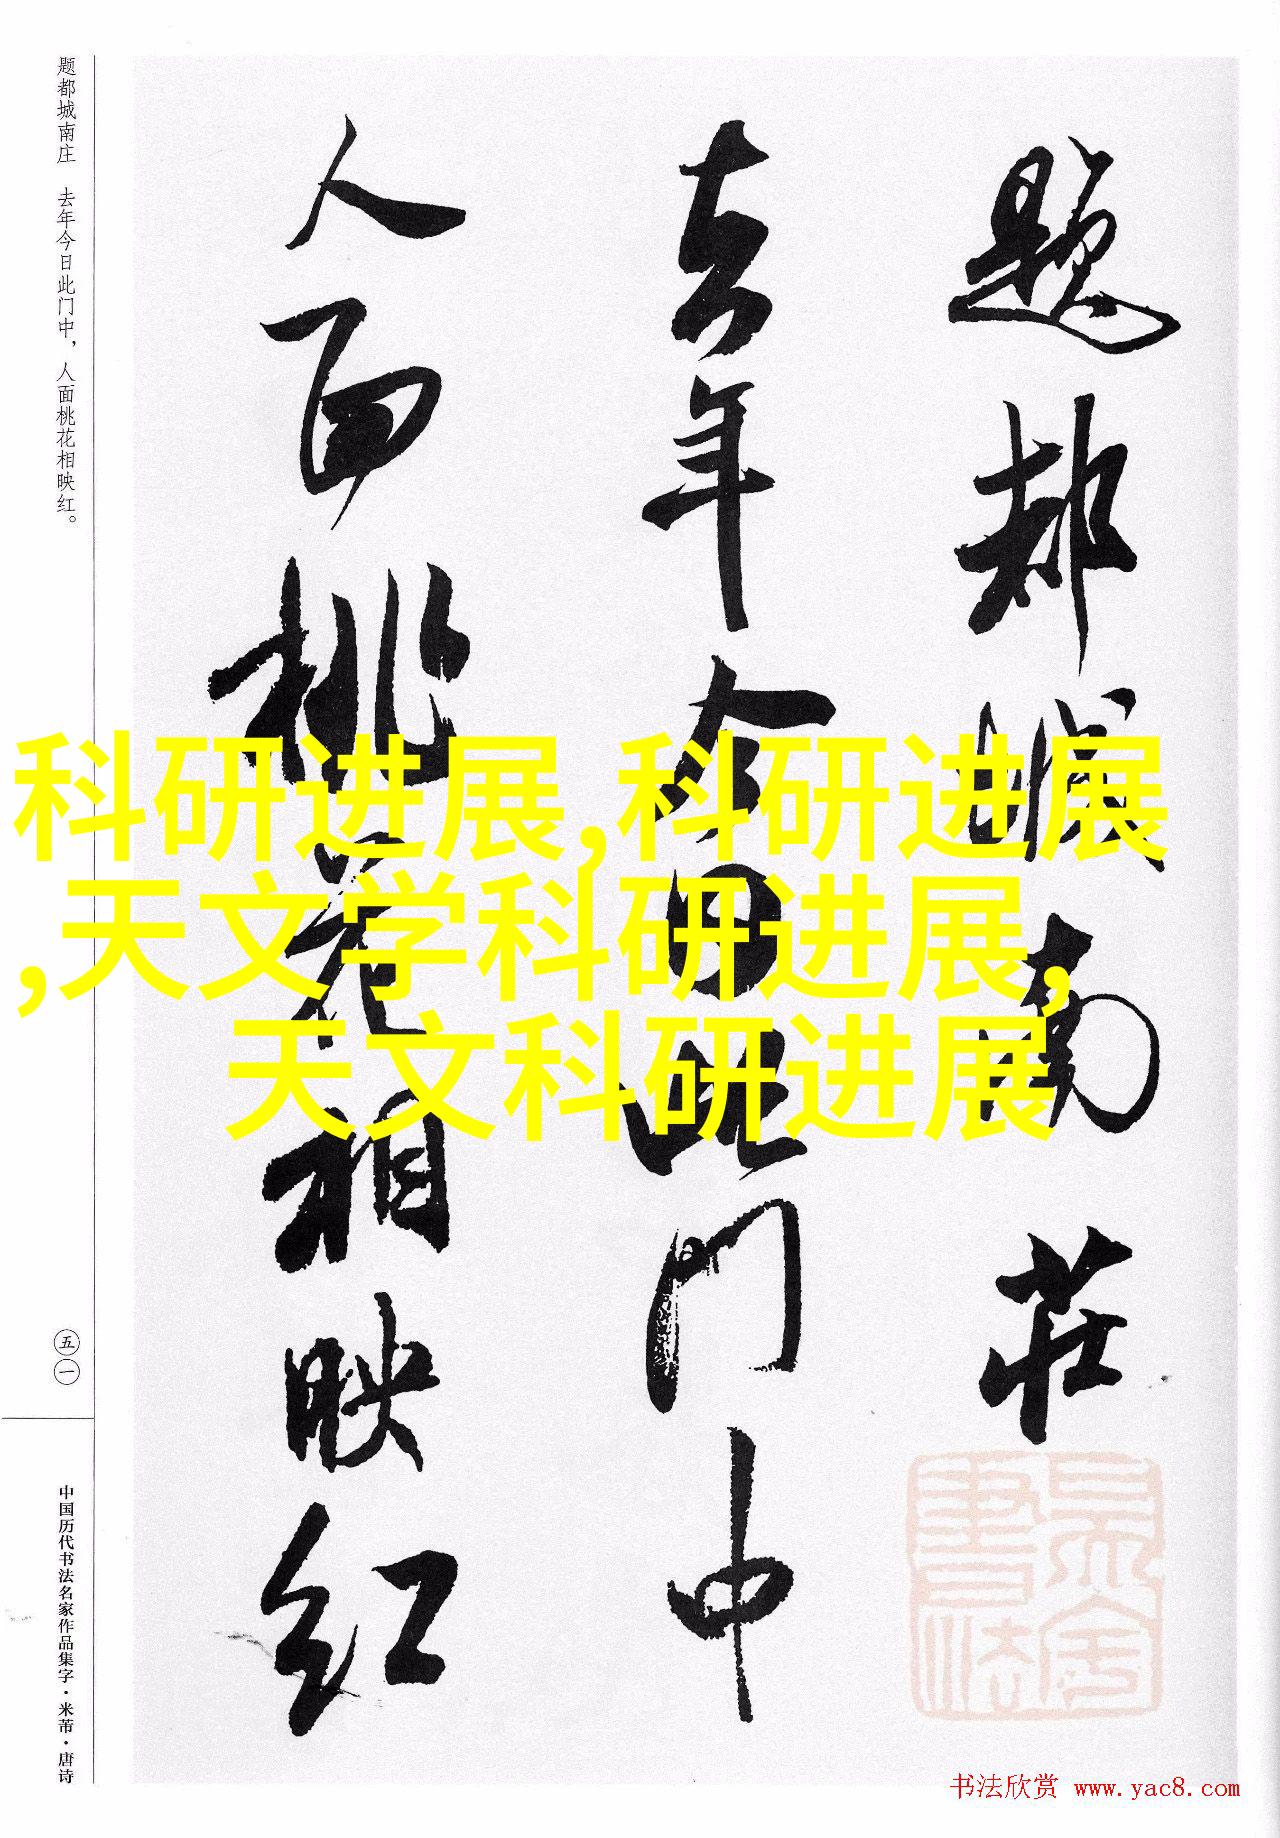 题都城南庄 去年今日此门中，人面桃花相映红。
五一
中国历代书法名家作品集字·米芾·唐诗
题都城南莊
去年今日此门中
人面桃花相映红
科研进展,科研进展
,天文学科研进展,
天文科研进展
书法欣赏 www.yac8.com